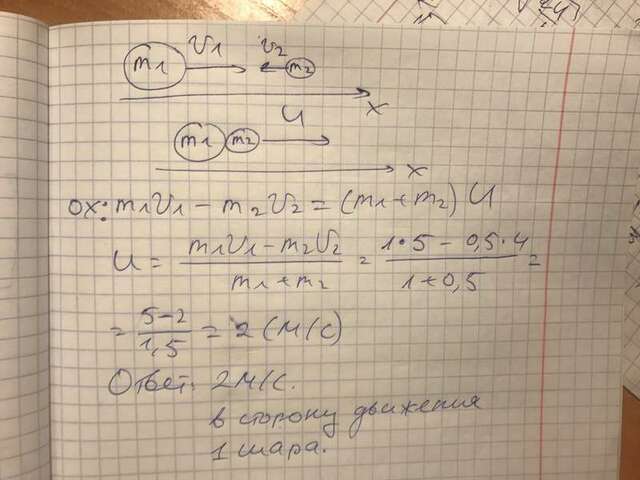 m1 V1 V2 m2
x
m1 m2 U
x
ox: m1V1 - m2V2 = (m1 + m2) U
U = (m1V1 - m2V2)/(m1 + m2) = (1•5 - 0,5•4)/(1 + 0,5) =
= (5-2)/1,5 = 2 (м/с)
Ответ: 2м/с.
в сторону движения
1 шара.